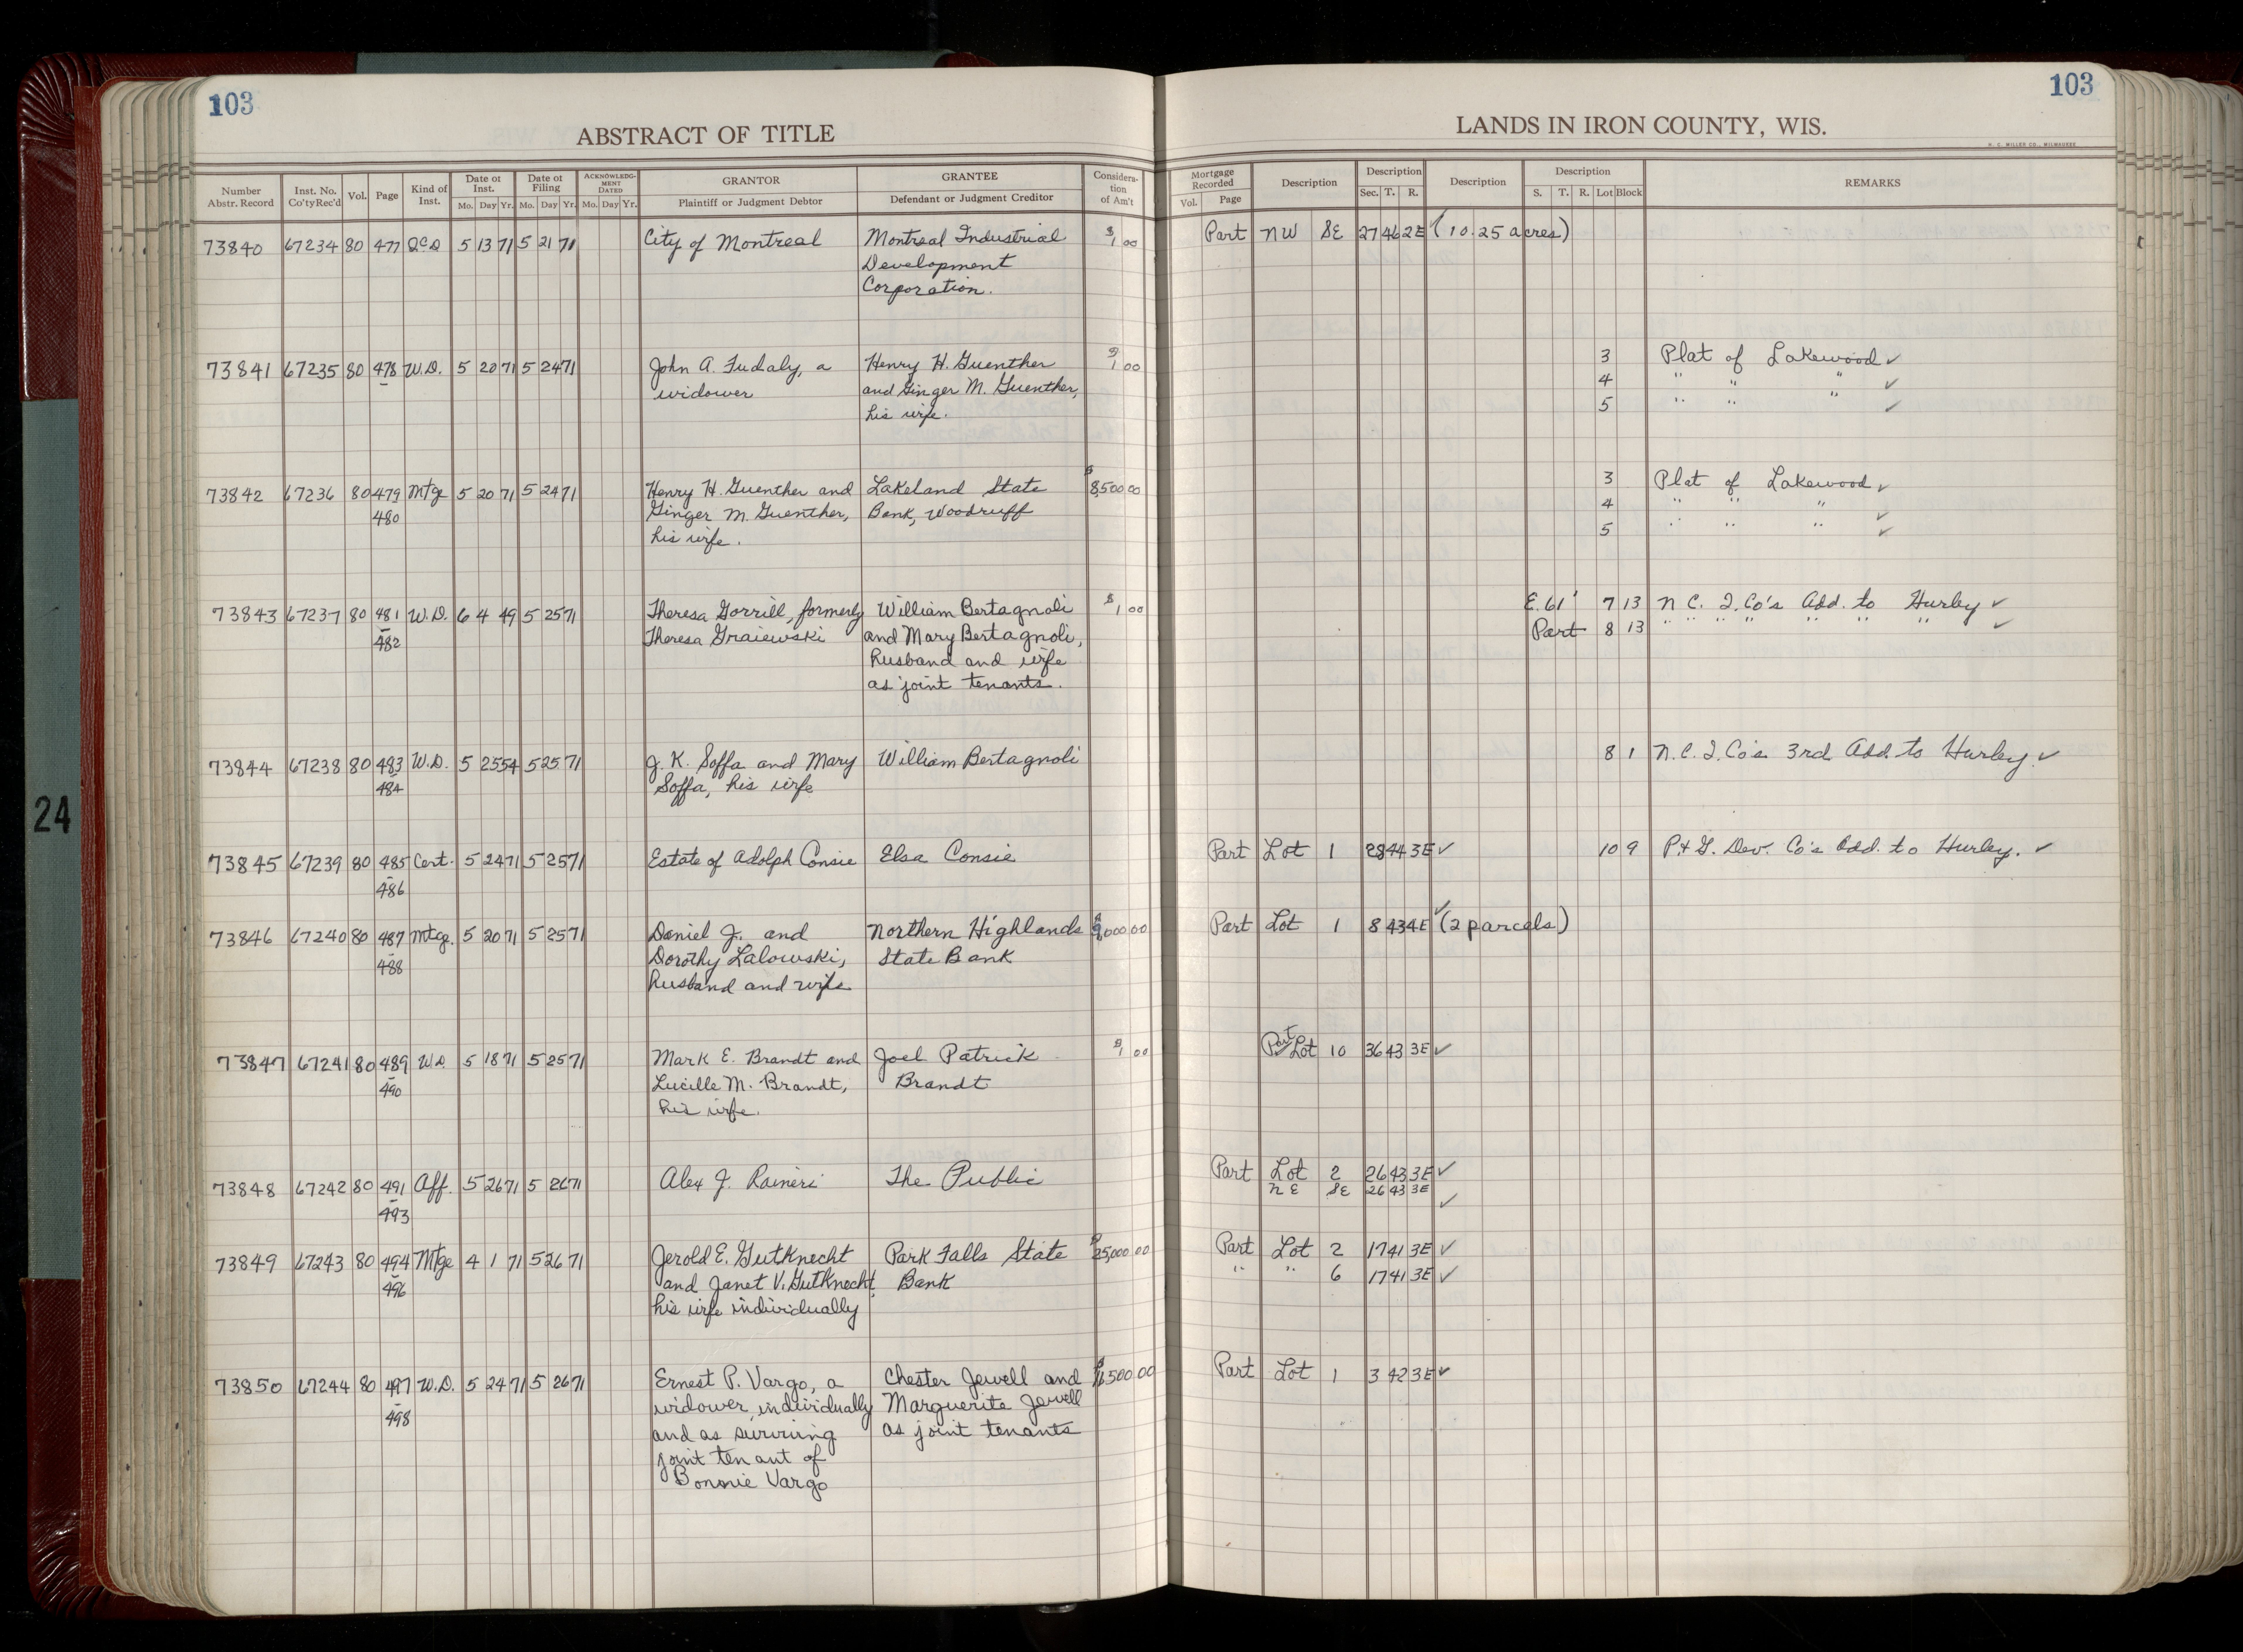 103
103
ABSTRACT OF TITLE
LANDS IN IRON COUNTY, WIS.
H. C. MILLER CO., MILWAUKEE
Number Abstr. Record Inst. No. Co'ty Rec'd Vol. Page Kind of Inst. Date of Inst. Mo. Day Yr. Date of Filing Mo. Day Yr. ACKNOWLEDGMENT DATED Mo. Day Yr. GRANTOR Plaintiff or Judgment Debtor GRANTEE Defendant or Judgment Creditor Consideration of Am't
Mortgage Recorded Vol. Page Description Description Sec. T. R. Description Description S. T. R. Lot Block REMARKS
73840 67234 80 477 QCD 5 13 71 5 21 71 City of Montreal Montreal Industrial $1 00 Part NW SE 27 46 2E ✓ (10.25 acres)
Development
Corporation.
73841 67235 80 478 W.D. 5 20 71 5 24 71 John A. Fudaly, a Henry H. Guenther $1 00 3 Plat of Lakewood ✓
widower and Ginger M. Guenther, 4 " " " ✓
his wife. 5 " " " ✓
73842 67236 80 479 Mtge 5 20 71 5 24 71 Henry H. Guenther and Lakeland State $8,500 00 3 Plat of Lakewood ✓
480 Ginger M. Guenther, Bank, Woodruff 4 " " " ✓
his wife. 5 " " " ✓
73843 67237 80 481 W.D. 6 4 49 5 25 71 Theresa Gorrill, formerly William Bertagnoli $1 00 E. 61' 7 13 N.C. I. Co's Add. to Hurley ✓
482 Theresa Graiewski and Mary Bertagnoli, Part 8 13 " " " " " " " ✓
husband and wife
as joint tenants.
73844 67238 80 483 W.D. 5 25 54 5 25 71 J. K. Soffa and Mary William Bertagnoli 8 1 N.C. I. Co's 3rd Add. to Hurley. ✓
484 Soffa, his wife
73845 67239 80 485 Cert. 5 24 71 5 25 71 Estate of Adolph Consie Elsa Consie Part Lot 1 28 44 3E ✓ 10 9 P. & G. Dev. Co's Add. to Hurley. ✓
486
73846 67240 80 487 Mtge. 5 20 71 5 25 71 Daniel J. and Northern Highlands $9,000 00 Part Lot 1 8 43 4E ✓ (2 parcels)
488 Dorothy Lalowski, State Bank
husband and wife
73847 67241 80 489 W.D. 5 18 71 5 25 71 Mark E. Brandt and Joel Patrick $1 00 Part Lot 10 36 43 3E ✓
490 Lucille M. Brandt, Brandt
his wife.
73848 67242 80 491 Aff. 5 26 71 5 26 71 Alex J. Raineri The Public Part Lot 2 26 43 3E ✓
493 NE SE 26 43 3E ✓
73849 67243 80 494 Mtge 4 1 71 5 26 71 Jerold E. Gutknecht Park Falls State $25,000 00 Part Lot 2 17 41 3E ✓
496 and Janet V. Gutknecht, Bank " " 6 17 41 3E ✓
his wife individually
73850 67244 80 497 W.D. 5 24 71 5 26 71 Ernest P. Vargo, a Chester Jewell and 500 00 Part Lot 1 3 42 3E ✓
498 widower, individually Marguerite Jewell
and as surviving as joint tenants
joint tenant of
Bonnie Vargo
24